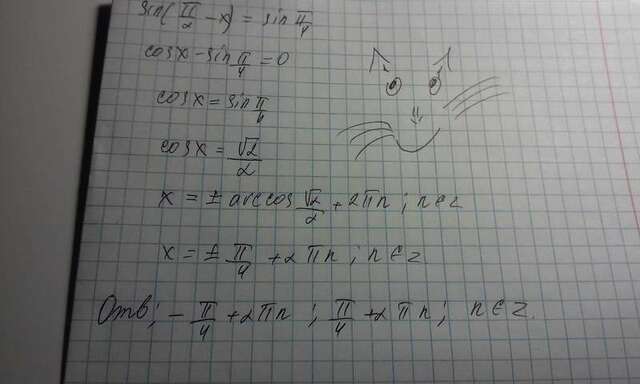 sin(π/2 - x) = sin π/4
cosx - sin π/4 = 0
cosx = sin π/4
cosx = √2/2
x = ± arccos √2/2 + 2πn ; n ∈ z
x = ± π/4 + 2πn ; n ∈ z
Отв; - π/4 + 2πn ; π/4 + 2πn ; n ∈ z.